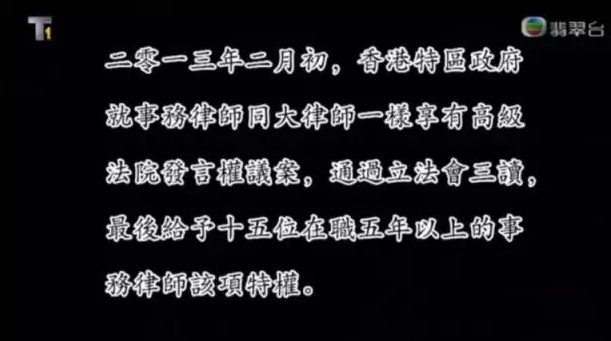 T1
翡翠台
二零一三年二月初，香港特區政府
就事務律師同大律師一樣享有高級
法院發言權議案，通過立法會三讀，
最後給予十五位在職五年以上的事
務律師該項特權。